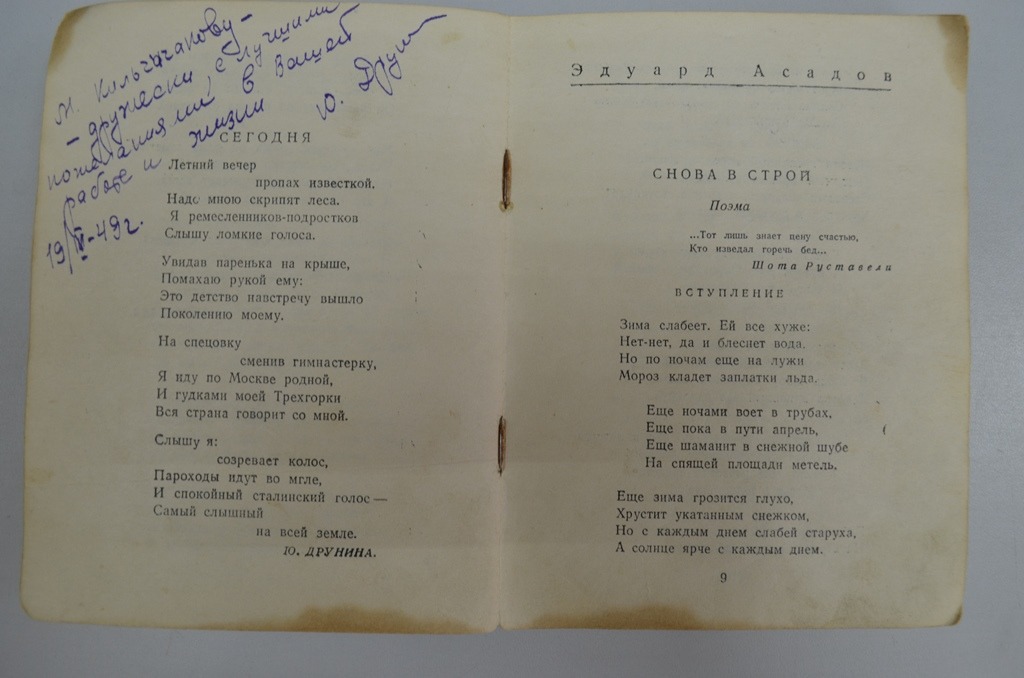 М. Кольчуганову -
- дружески, с лучшими
пожеланиями в Вашей
работе и жизни
Ю. Друн
19/IV-49г.
СЕГОДНЯ
Летний вечер
пропах известкой.
Надо мною скрипят леса.
Я ремесленников-подростков
Слышу ломкие голоса.
Увидав паренька на крыше,
Помахаю рукой ему:
Это детство навстречу вышло
Поколению моему.
На спецовку
сменив гимнастерку,
Я иду по Москве родной,
И гудками моей Трехгорки
Вся страна говорит со мной.
Слышу я:
созревает колос,
Пароходы идут во мгле,
И спокойный сталинский голос —
Самый слышный
на всей земле.
Ю. ДРУНИНА.
Эдуард Асадов
СНОВА В СТРОЙ
Поэма
...Тот лишь знает цену счастью,
Кто изведал горечь бед...
Шота Руставели
ВСТУПЛЕНИЕ
Зима слабеет. Ей все хуже:
Нет-нет, да и блеснет вода.
Но по ночам еще на лужи
Мороз кладет заплатки льда.
Еще ночами воет в трубах,
Еще пока в пути апрель,
Еще шаманит в снежной шубе
На спящей площади метель.
Еще зима грозится глухо,
Хрустит укатанным снежком,
Но с каждым днем слабей старуха,
А солнце ярче с каждым днем.
9